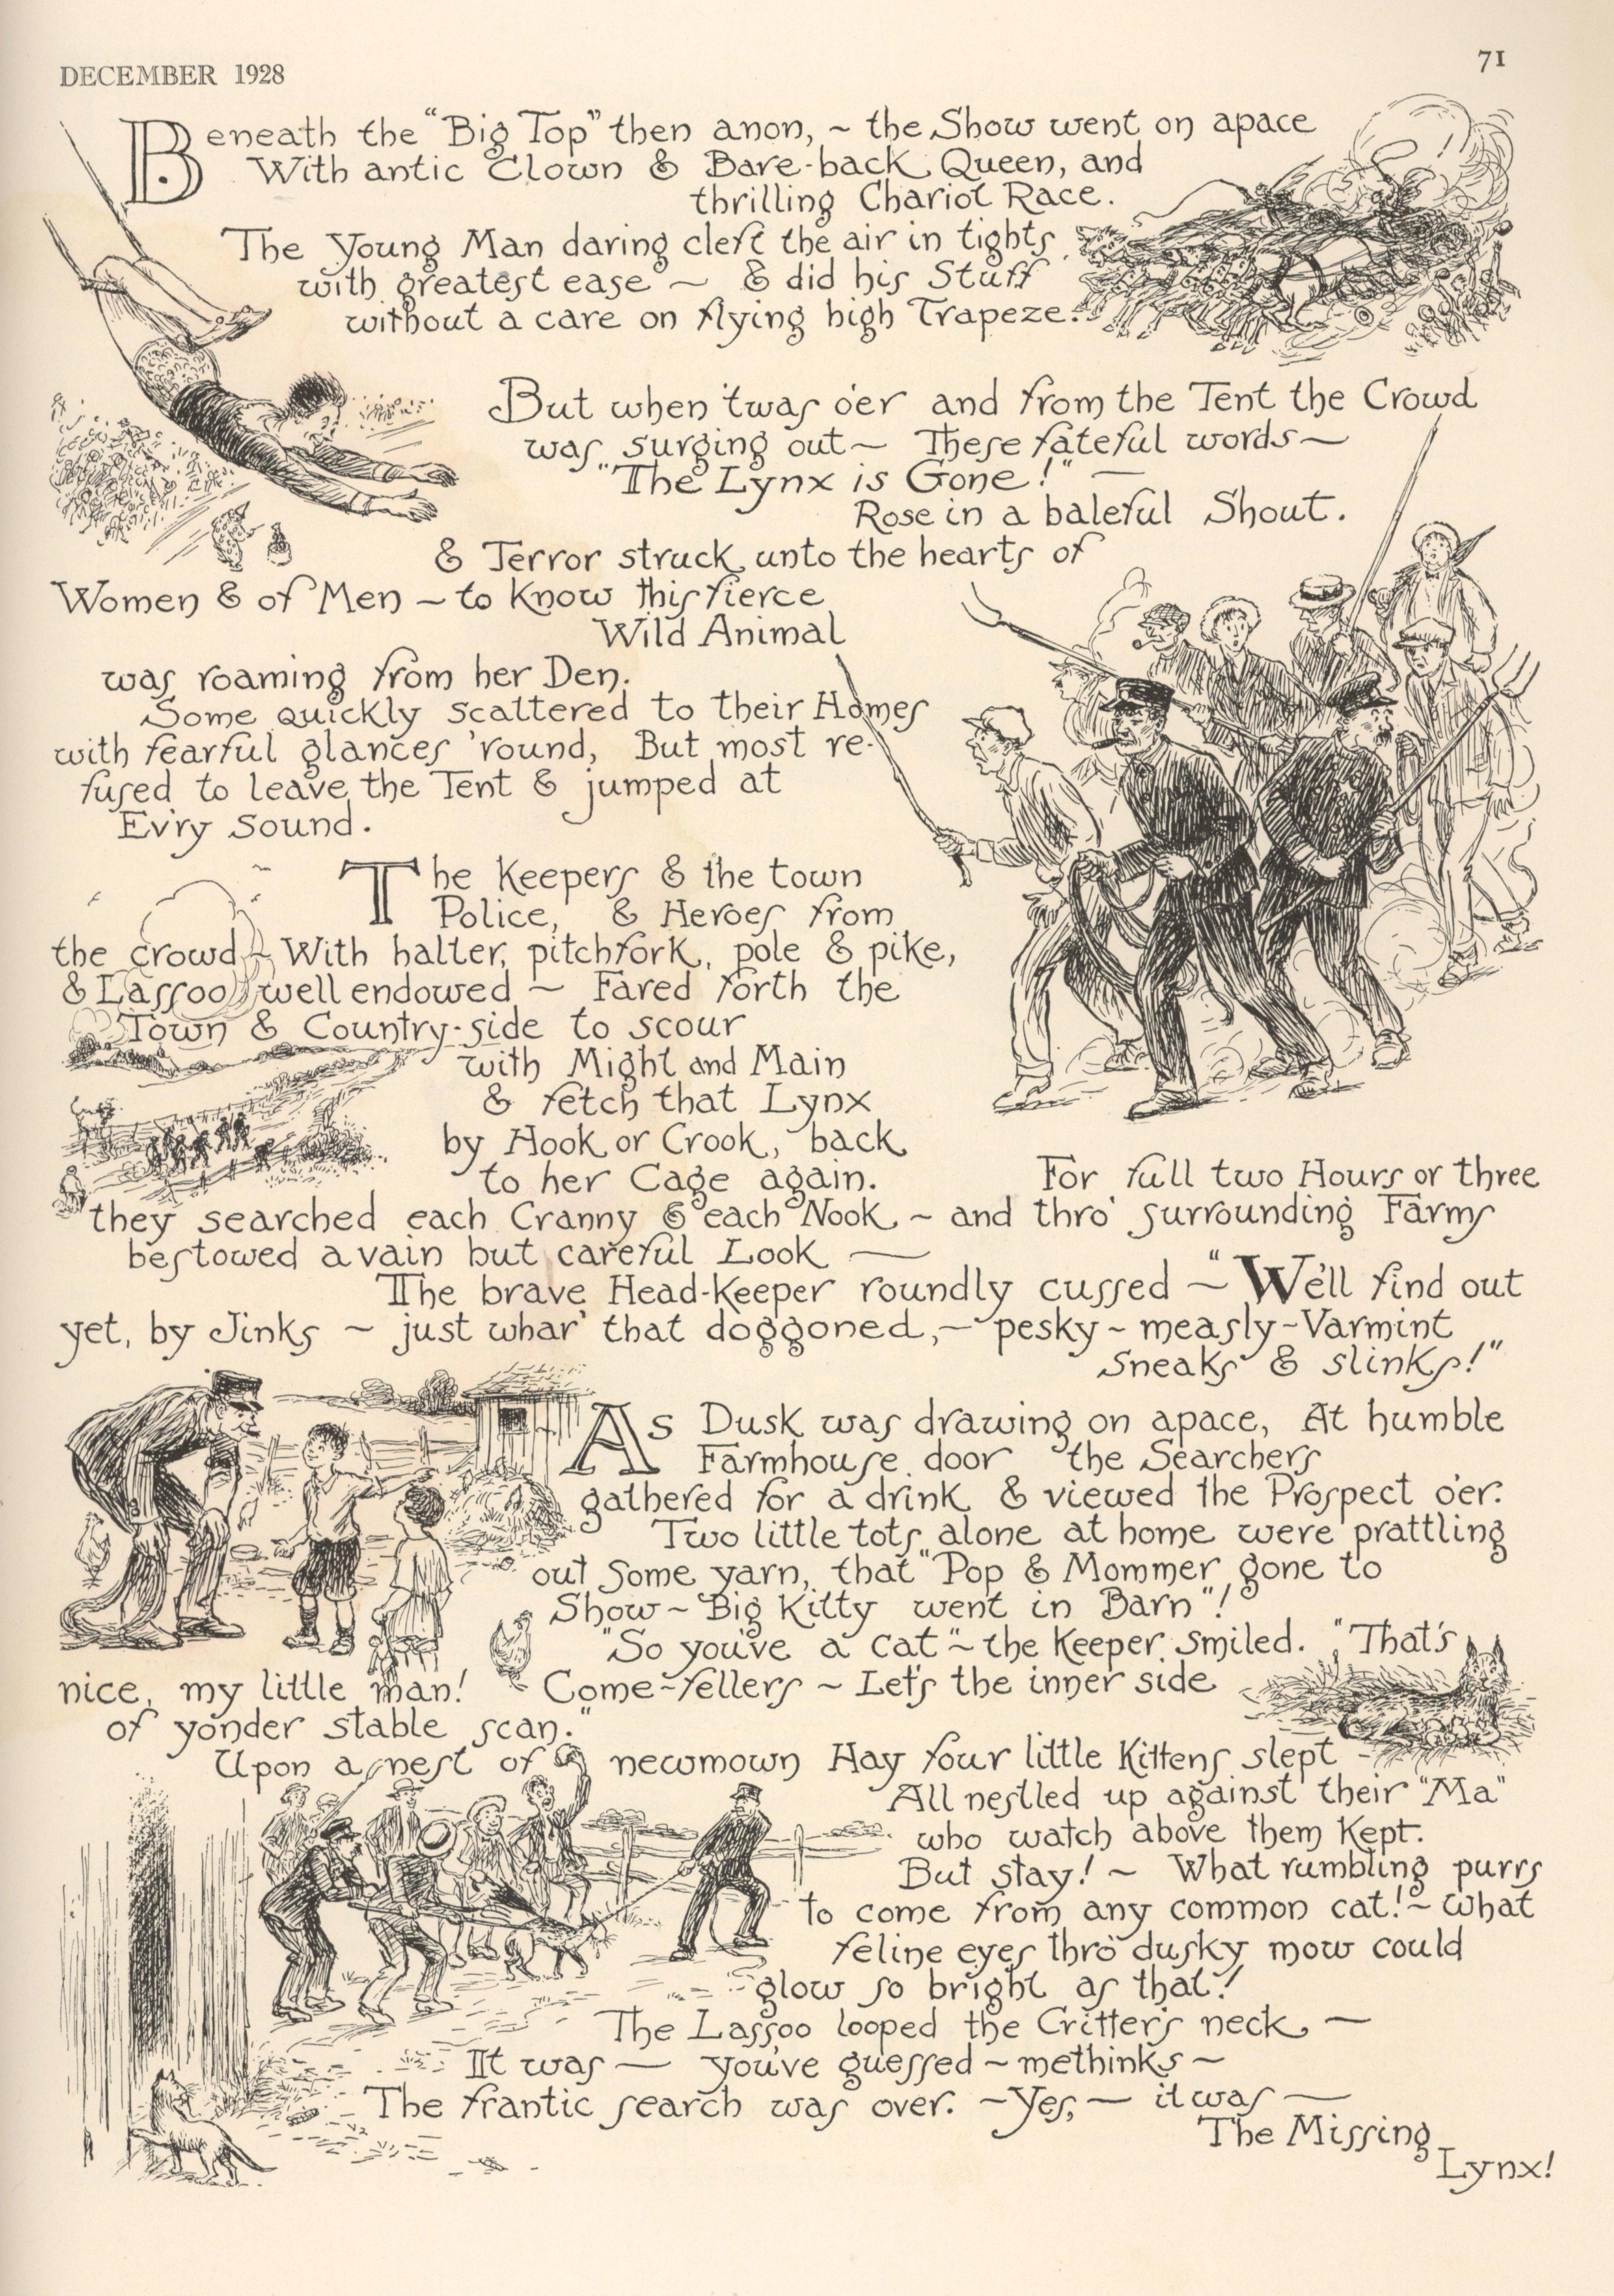 DECEMBER 1928
71
Beneath the "Big Top" then anon, ~ the Show went on apace
With antic Clown & Bare-back Queen, and
thrilling Chariot Race.
The Young Man daring cleft the air in tights
with greatest ease ~ & did his Stuff
without a care on flying high Trapeze.
But when 'twas o'er and from the Tent the Crowd
was surging out ~ These fateful words ~
"The Lynx is Gone!" —
Rose in a baleful Shout.
& Terror struck unto the hearts of
Women & of Men ~ to know this fierce
Wild Animal
was roaming from her Den.
Some quickly scattered to their Homes
with fearful glances 'round, But most re-
fused to leave the Tent & jumped at
Ev'ry Sound.
The Keepers & the town
Police, & Heroes from
the crowd ~ With halter, pitchfork, pole & pike,
& Lassoo well endowed ~ Fared forth the
Town & Country-side to scour
with Might and Main
& fetch that Lynx
by Hook or Crook, back
to her Cage again.
For full two Hours or three
they searched each Cranny & each Nook ~ and thro' surrounding Farms
bestowed a vain but careful Look —
The brave Head-Keeper roundly cussed ~ "We'll find out
yet, by Jinks ~ just whar' that doggoned, ~ pesky ~ measly ~ Varmint
Sneaks & slinks!"
As Dusk was drawing on apace, At humble
Farmhouse door the Searchers
gathered for a drink & viewed the Prospect o'er.
Two little tots alone at home were prattling
out some yarn, that "Pop & Mommer gone to
Show ~ Big Kitty went in Barn"!
"So you've a cat" ~ the Keeper smiled. "That's
nice, my little man! Come ~ fellers ~ Let's the inner side
of yonder stable scan."
Upon a nest of newmown Hay four little Kittens slept
All nestled up against their "Ma"
who watch above them kept.
But stay! ~ What rumbling purrs
to come from any common cat! ~ what
feline eyes thro' dusky mow could
glow so bright as that!
The Lassoo looped the Critter's neck, —
It was — you've guessed ~ methinks ~
The frantic search was over. ~ Yes, — it was —
The Missing
Lynx!